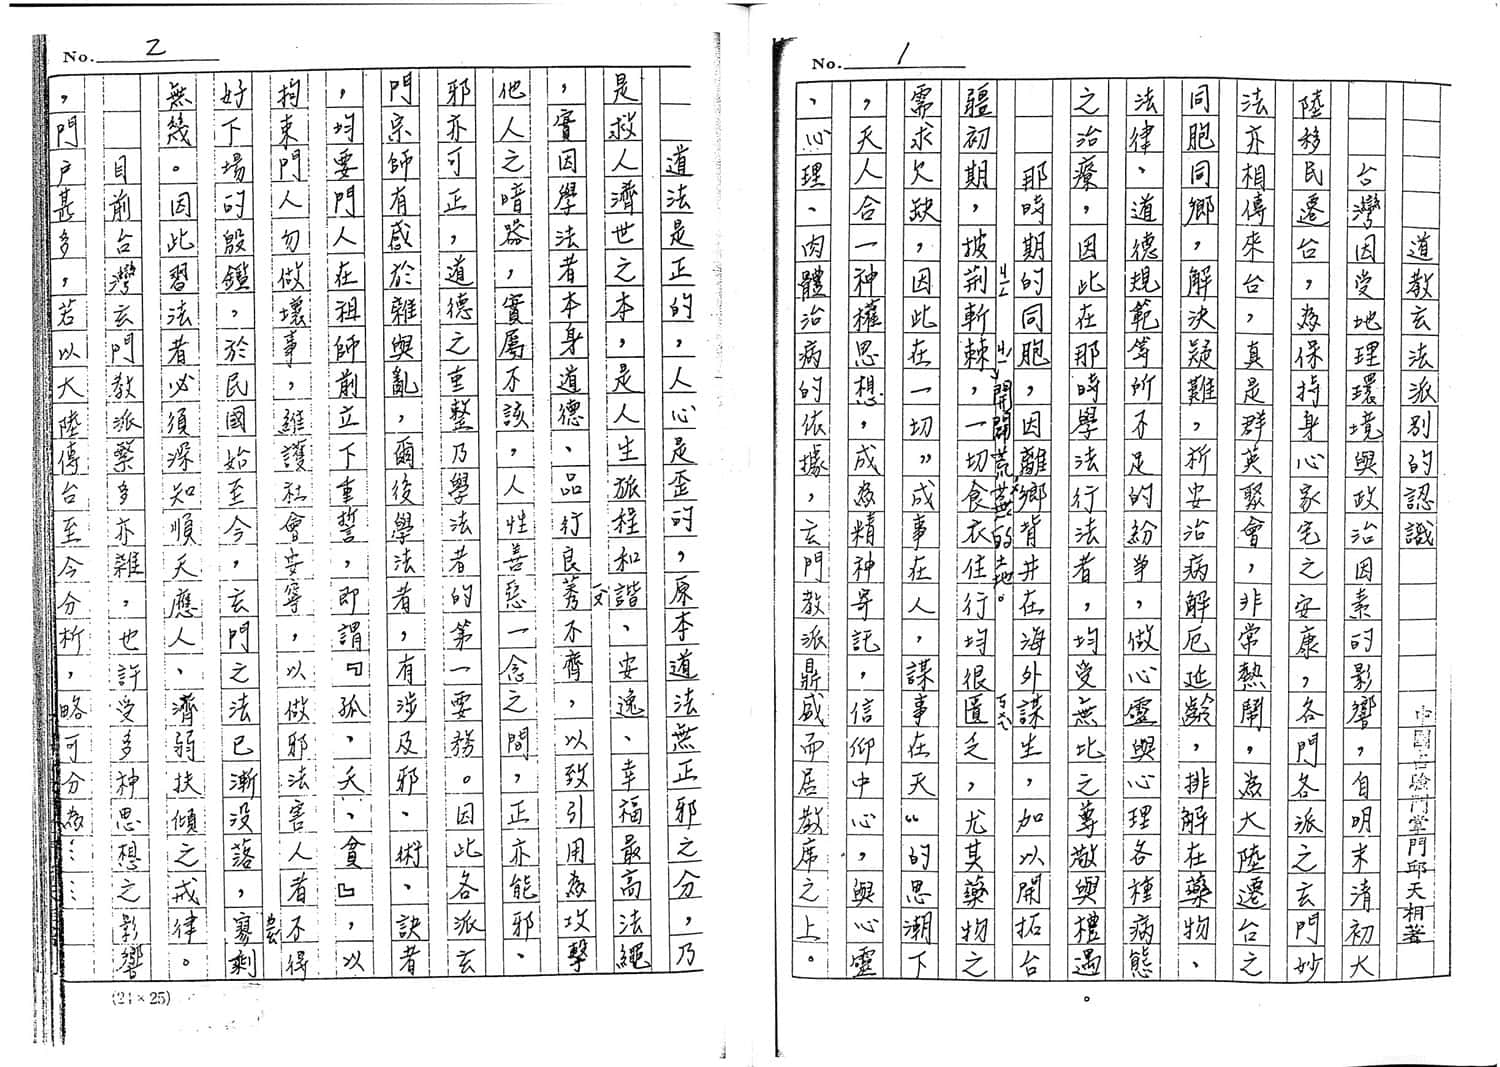 No. 1
道教玄法派別的認識
中國占驗門掌門邱天相著
台灣因受地理環境與政治因素的影響，自明末清初大
陸移民遷台，為保持身心家宅之安康，各門各派之玄門妙
法亦相傳來台，真是群英聚會，非常熱鬧，為大陸遷台之
同胞同鄉，解決疑難，祈安治病解厄延齡，排解在藥物、
法律、道德規範等所不足的紛爭，做心靈與心理各種病態
之治療，因此在那時學法行法者，均受無比之尊敬與禮遇
。
那時期的同胞，因離鄉背井在海外謀生，加以開拓台
疆初期，披荊斬棘，開闢荒蕪的土地。一切食衣住行均很匱乏，尤其藥物之
需求欠缺，因此在一切〝成事在人，謀事在天〞的思潮下
，天人合一神權思想，成為精神寄託，信仰中心，與心靈
、心理、肉體治病的依據，玄門教派鼎盛而居教席之上。
No. 2
道法是正的，人心是歪的，原本道法無正邪之分，乃
是救人濟世之本，是人生旅程和諧、安逸、幸福最高法繩
，實因學法者本身道德、品行良莠不齊，以致引用為攻擊
他人之暗器，實屬不該，人性善惡一念之間，正亦能邪、
邪亦可正，道德之重整乃學法者的第一要務。因此各派玄
門宗師有感於雜與亂，爾後學法者，有涉及邪、術、訣者
，均要門人在祖師前立下重誓，即謂『孤、夭、貧』，以
拘束門人勿做壞事，維護社會安寧，以做邪法害人者不得
好下場的殷鑑，於民國始至今，玄門之法已漸沒落，寥剩
無幾。因此習法者必須深知順天應人、濟弱扶傾之戒律。
目前台灣玄門教派繁多亦雜，也許受多神思想之影響
，門戶甚多，若以大陸傳台至今分析，略可分為……
(24×25)